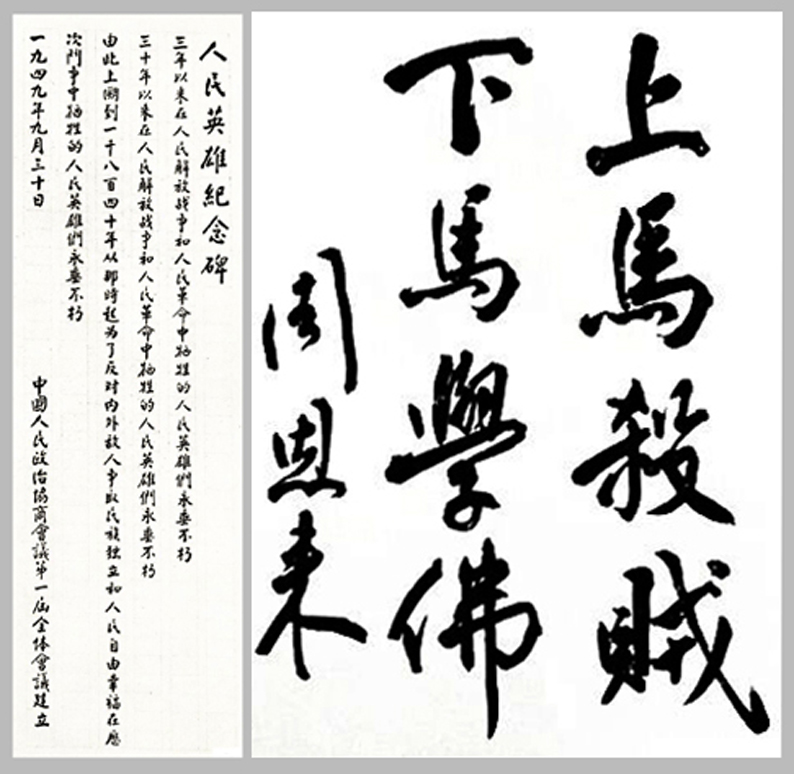 人民英雄紀念碑
三年以来在人民解放战争和人民革命中牺牲的人民英雄們永垂不朽
三十年以来在人民解放战争和人民革命中牺牲的人民英雄們永垂不朽
由此上溯到一千八百四十年从那時起为了反对内外敌人争取民族独立和人民自由幸福在歷
次鬥争中牺牲的人民英雄們永垂不朽
一九四九年九月三十日 中國人民政治協商會議第一屆全体會議建立
上馬殺賊
下馬學佛
周恩来